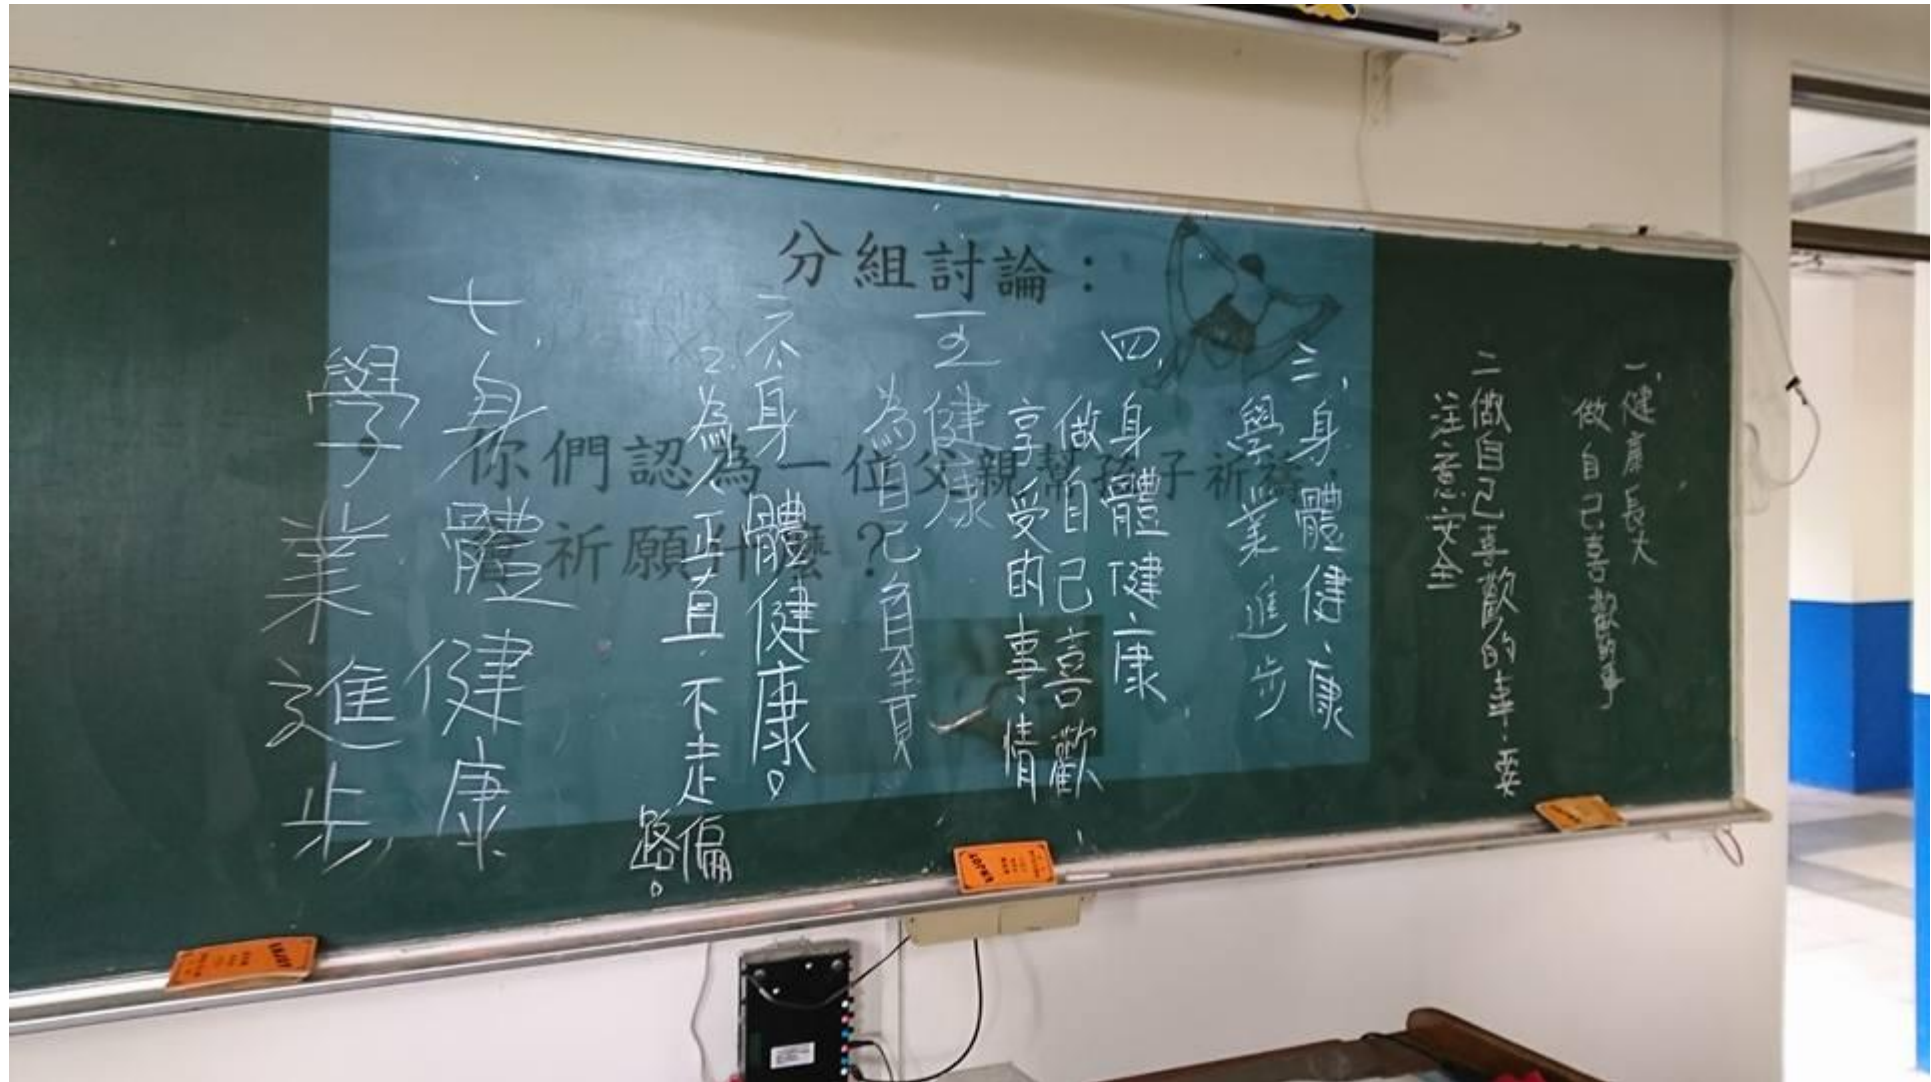 分組討論：
你們認為一位父親幫孩子祈禱，
會祈願什麼？
一、健康長大
做自己喜歡的事
二做自己喜歡的事、要
注意安全
三、身體健康
學業進步
四、身體健康
做自己喜歡、
享受的事情
五健康
為自己負責
六身體健康。
2.為人正直、不走偏
路。
七、身體健康
學業進步
ENJOY